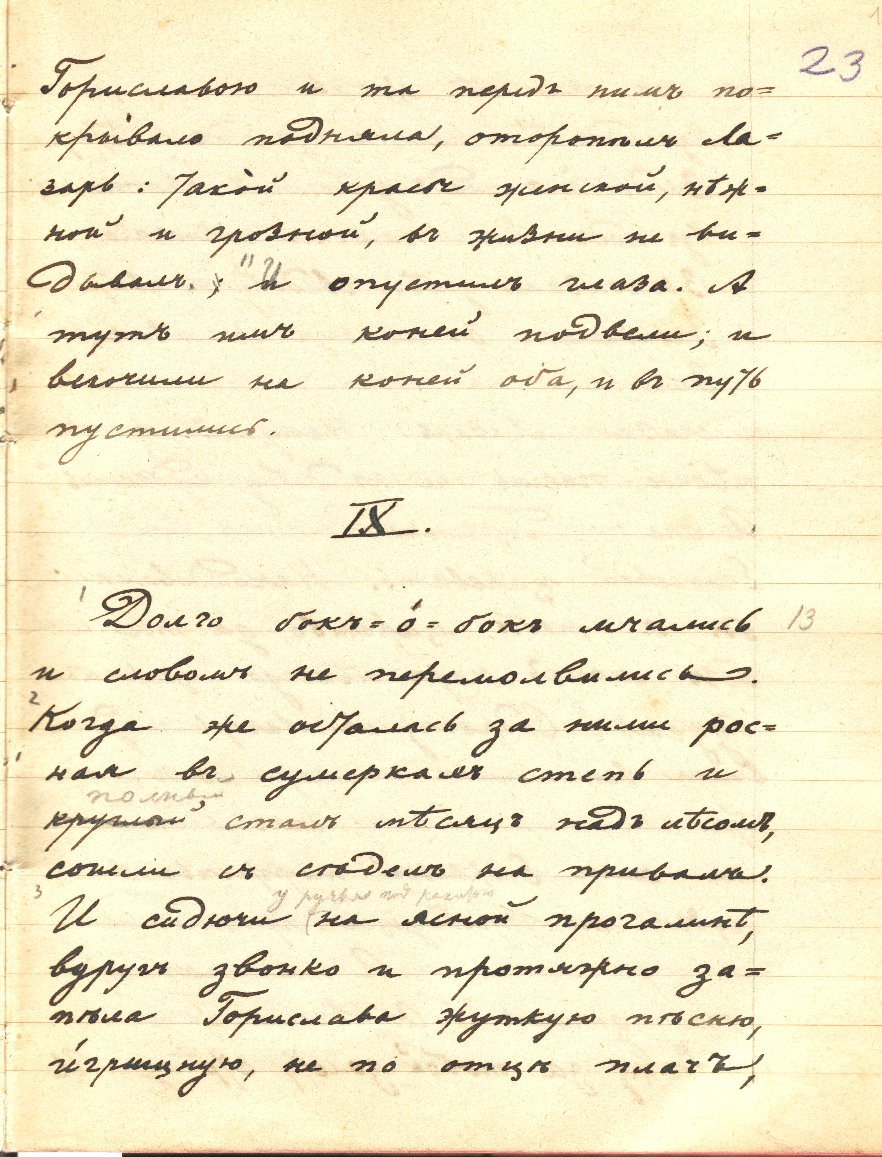 23
Гориславою и та передъ нимъ по=
крывало подняла, оторопѣлъ Ла=
зарь: такой красы женской, нѣж=
ной и грозной, въ жизни не ви=
дывалъ. И опустилъ глаза. А
тутъ имъ коней подвели; и
вскочили на коней оба, и въ путь
пустились.
IX.
1 Долго бокъ=о́=бокъ мчались 13
и словомъ не перемолвились.
2 Когда же осталась за ними рос=
ная въ сумеркахъ степь и
полный
круглый сталъ мѣсяцъ надъ лѣсомъ,
сошли съ сѣделъ на привалъ.
у ручья под ракитою
3 И си́дючи на ясной прогалинѣ,
вдругъ звонко и протяжно за=
пѣла Горислава жуткую пѣсню,
и́грищную, не по отцѣ плачъ,